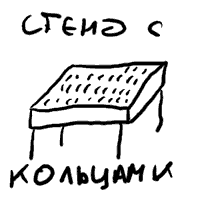 СТЕНД С
КОЛЬЦАМИ